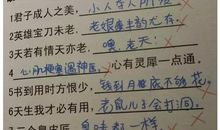 1君子成人之美，小人夺人所爱
2英雄宝刀未老，老娘风韵尤存。
3天若有情天亦老，嘿，老天！
4 心肌梗塞遇神医，心有灵犀一点通。
5书到用时方恨少，钱到月底不够花
6天生我才必有用，老鼠儿子会打洞。
臭味都一样